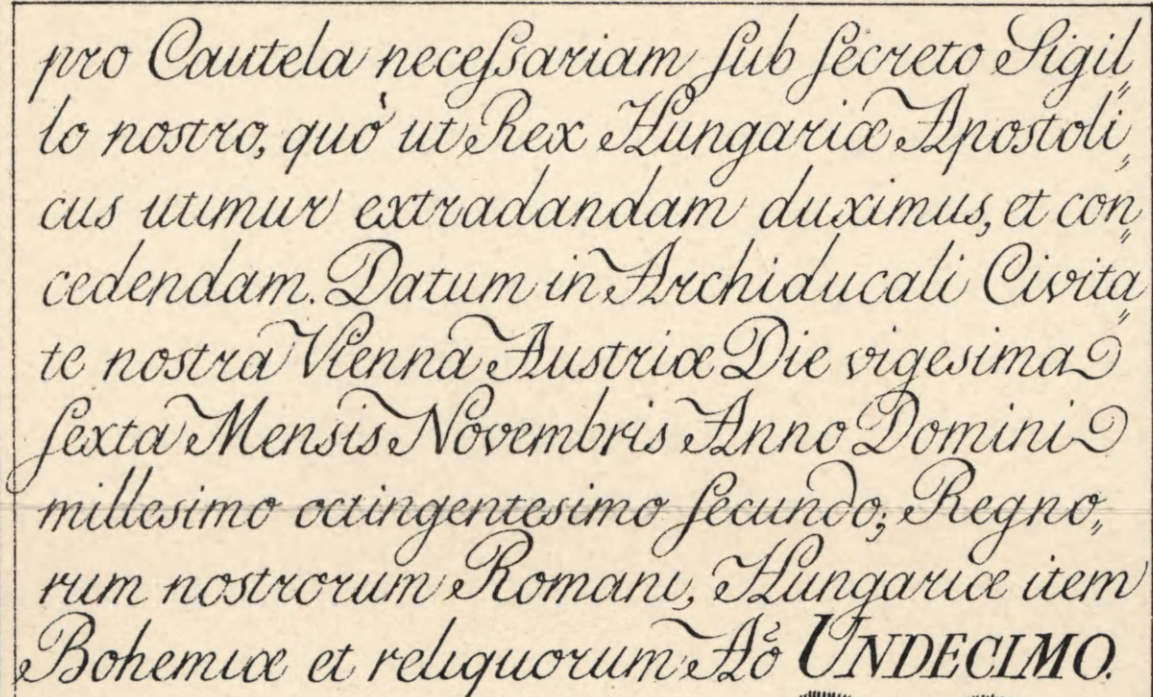 pro Cautela neceſsariam ſub ſecreto Sigil„
lo nostro, quò ut Rex Hungariæ Apostoli„
cus utimur extradandam duximus, et con„
cedendam. Datum in Archiducali Civita„
te nostra Vienna Austriæ Die vigesima
ſexta Mensis Novembris Anno Domini
millesimo octingentesimo ſecundo; Regno„
rum nostrorum Romani, Hungariæ item
Bohemiæ et reliquorum Aõ UNDECIMO.